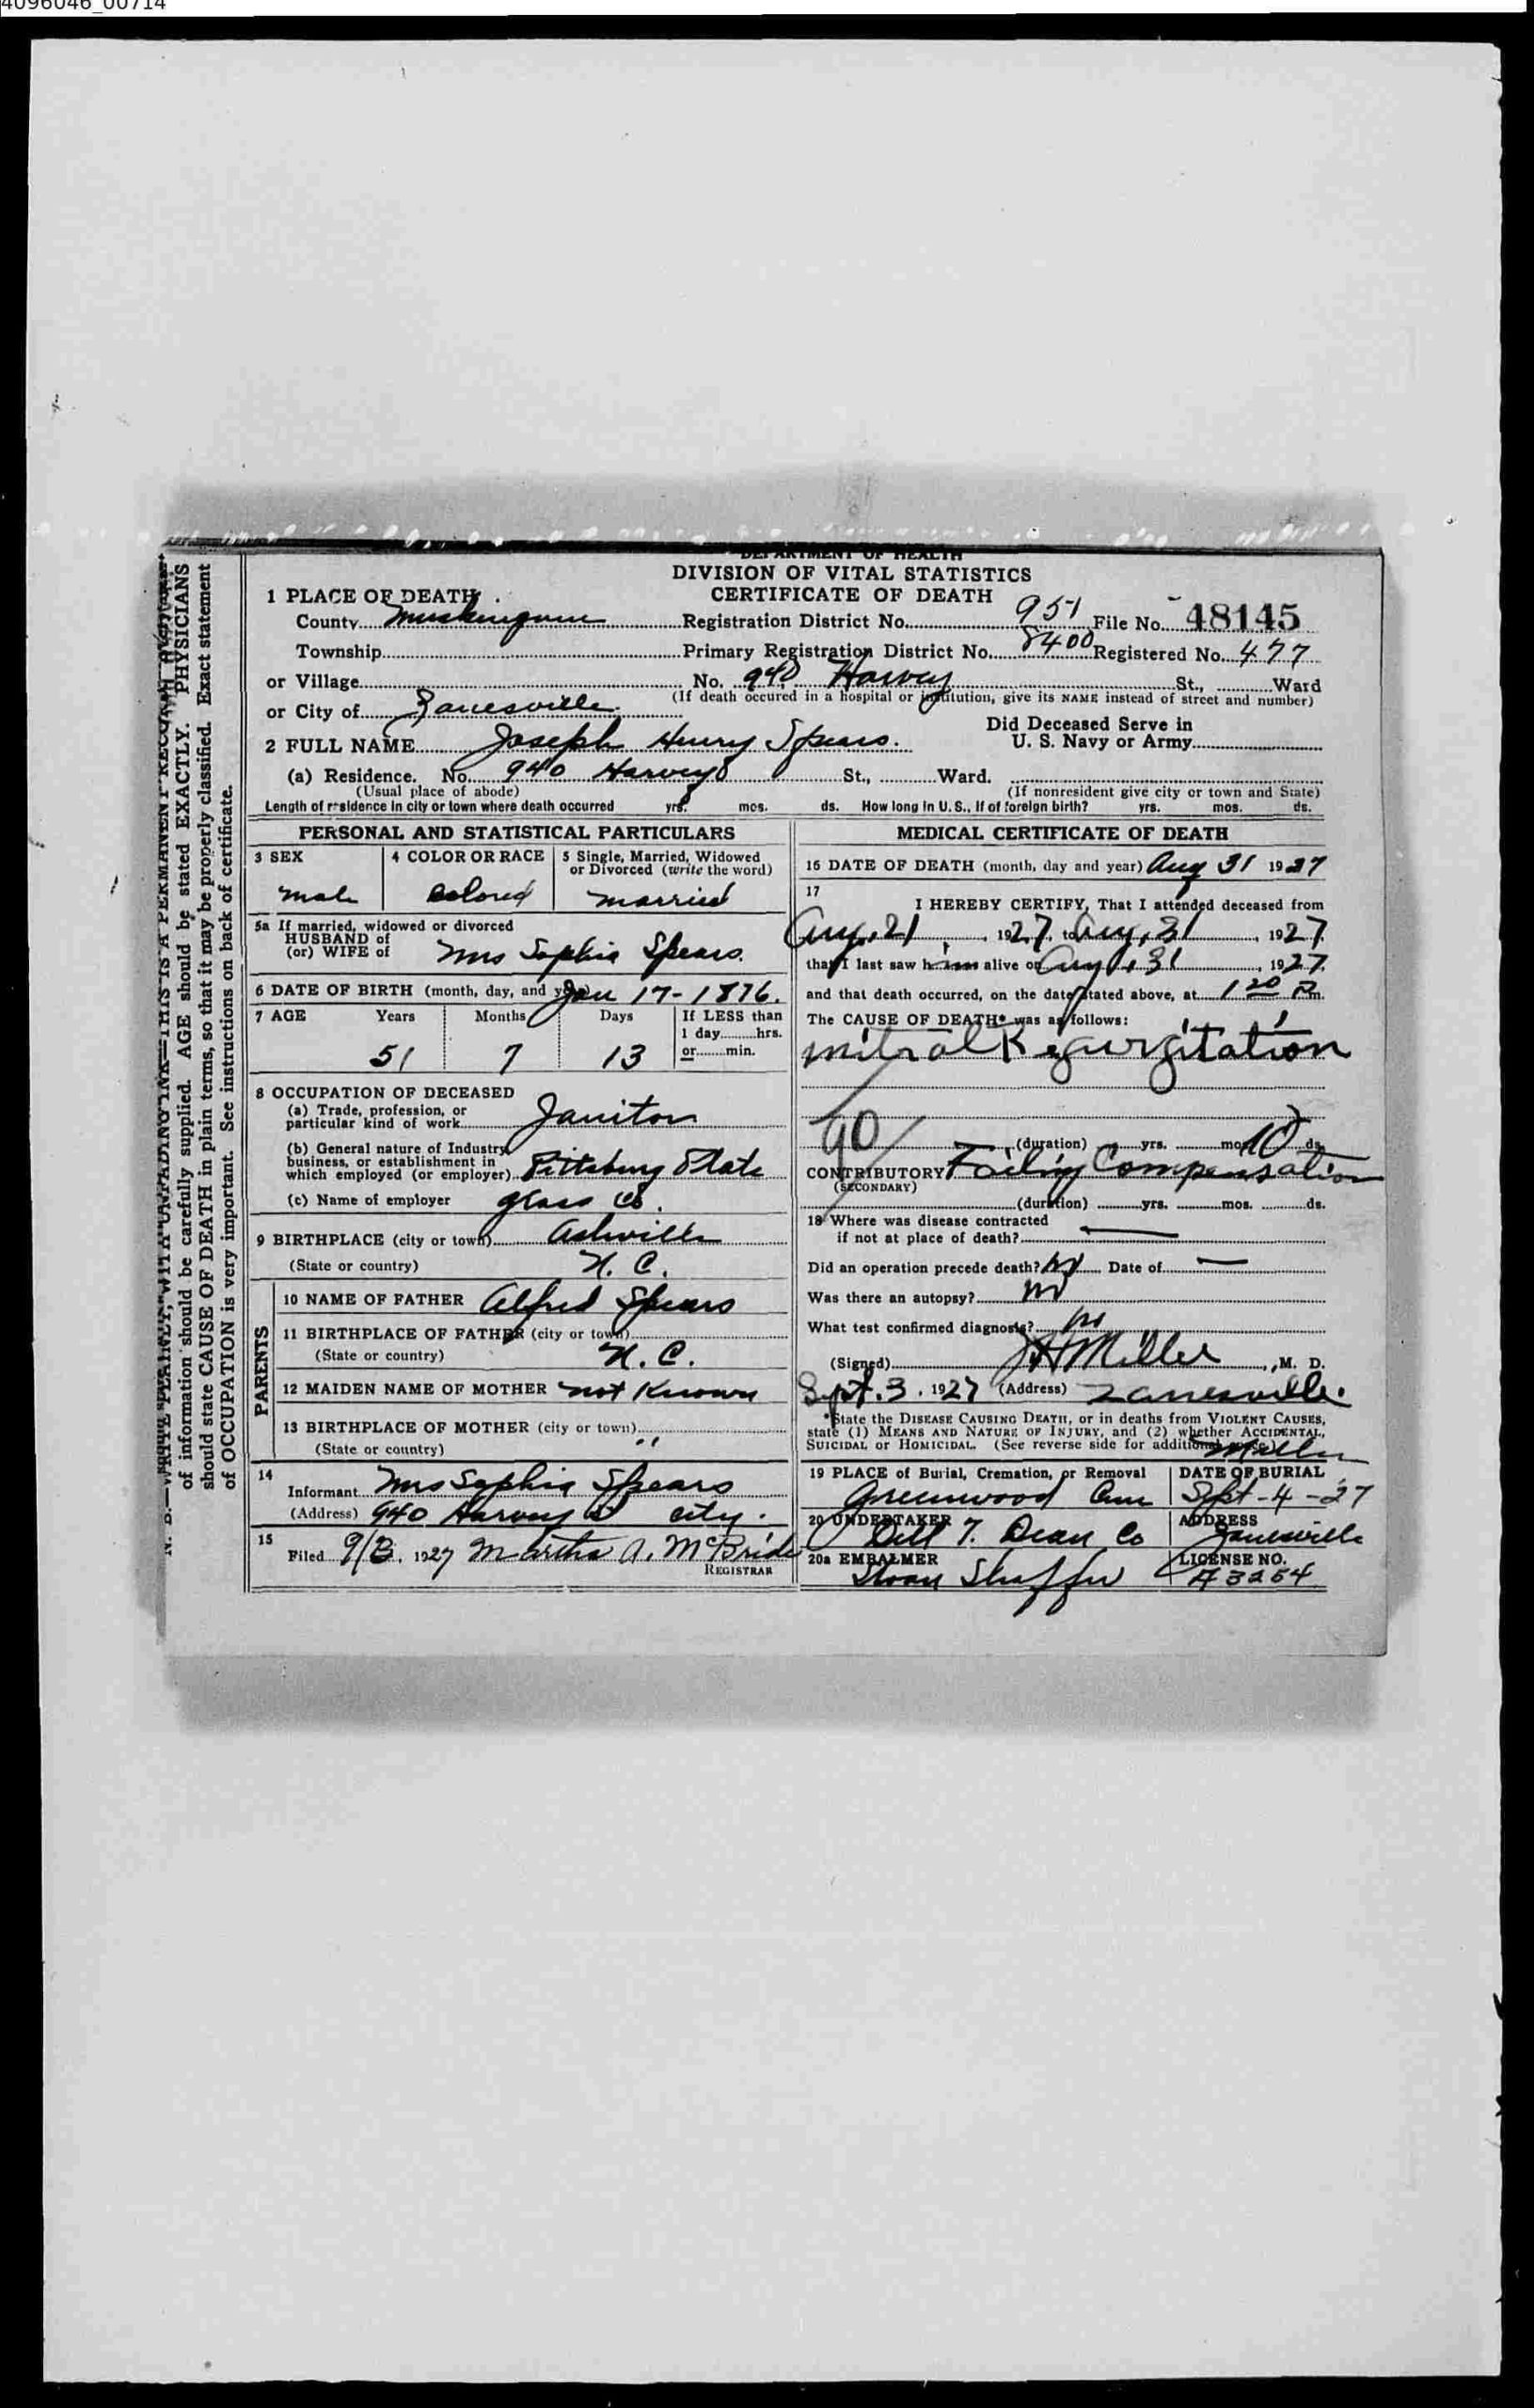 4096046_00714
DEPARTMENT OF HEALTH
DIVISION OF VITAL STATISTICS
CERTIFICATE OF DEATH
1 PLACE OF DEATH
County Muskingum Registration District No. 951 File No. 48145
Township Primary Registration District No. 8400 Registered No. 477
or Village No. 940 Harvey St., Ward
(If death occured in a hospital or institution, give its NAME instead of street and number)
or City of Zanesville
Did Deceased Serve in
U. S. Navy or Army
2 FULL NAME Joseph Henry Spears.
(a) Residence. No. 940 Harvey St., Ward.
(Usual place of abode) (If nonresident give city or town and State)
Length of residence in city or town where death occurred yrs. mos. ds. How long in U. S., if of foreign birth? yrs. mos. ds.
PERSONAL AND STATISTICAL PARTICULARS
3 SEX 4 COLOR OR RACE 5 Single, Married, Widowed
or Divorced (write the word)
male colored married
5a If married, widowed or divorced
HUSBAND of
(or) WIFE of Mrs Sophia Spears.
6 DATE OF BIRTH (month, day, and year) Jan 17-1876.
7 AGE Years Months Days If LESS than
1 day hrs.
or min.
51 7 13
8 OCCUPATION OF DECEASED
(a) Trade, profession, or
particular kind of work Janitor
(b) General nature of Industry
business, or establishment in
which employed (or employer) Pittsburg Plate
(c) Name of employer glass Co.
9 BIRTHPLACE (city or town) Ashville
(State or country) N. C.
PARENTS
10 NAME OF FATHER Alfred Spears
11 BIRTHPLACE OF FATHER (city or town)
(State or country) N. C.
12 MAIDEN NAME OF MOTHER not Known
13 BIRTHPLACE OF MOTHER (city or town)
(State or country) "
14
Informant Mrs Sophia Spears
(Address) 940 Harvey St city.
15
Filed 9/3. 1927 Martha A. McBride
REGISTRAR
MEDICAL CERTIFICATE OF DEATH
16 DATE OF DEATH (month, day and year) Aug 31 1927
17
I HEREBY CERTIFY, That I attended deceased from
Aug, 21, 1927, to Aug, 31, 1927.
that I last saw him alive on Aug, 31, 1927.
and that death occurred, on the date stated above, at 1 20 P.m.
The CAUSE OF DEATH* was as follows:
Mitral Regurgitation
90
(duration) yrs. mos. 10 ds.
CONTRIBUTORY Failing Compensation
(SECONDARY)
(duration) yrs. mos. ds.
18 Where was disease contracted
if not at place of death? —
Did an operation precede death? No Date of —
Was there an autopsy? No
What test confirmed diagnosis? No
(Signed) J H Miller, M. D.
Sept. 3. 1927 (Address) Zanesville.
*State the DISEASE CAUSING DEATH, or in deaths from VIOLENT CAUSES,
state (1) MEANS AND NATURE OF INJURY, and (2) whether ACCIDENTAL,
SUICIDAL or HOMICIDAL. (See reverse side for additional space.)
Miller
19 PLACE of Burial, Cremation, or Removal DATE OF BURIAL
Greenwood Cem Sept-4-27
20 UNDERTAKER ADDRESS
Dell T. Dean Co Zanesville
20a EMBALMER LICENSE NO.
Sloan Shaffer A3264
N. B.—WRITE PLAINLY, WITH UNFADING INK—THIS IS A PERMANENT RECORD.
of information should be carefully supplied. AGE should be stated EXACTLY. PHYSICIANS
should state CAUSE OF DEATH in plain terms, so that it may be properly classified. Exact statement
of OCCUPATION is very important. See instructions on back of certificate.